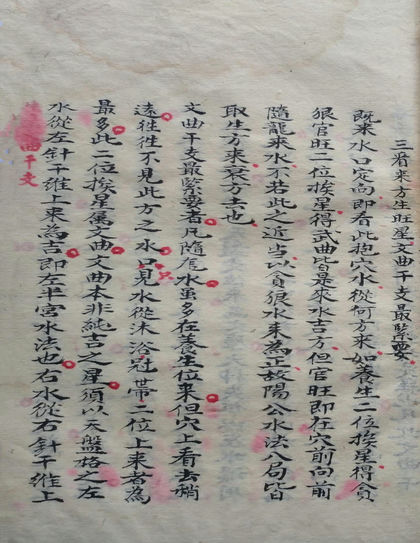 三看來方生旺星文曲干支最緊要
既來水口定向即看此挹穴水從何方來如養生二位挨星得貪
狠官旺二位挨星得武曲皆是來水吉方但官旺即在穴前向前
隨龍來水不若此之近當以貪狠水来為正故陽公水法八局皆
取生方來衰方去也
文曲干支最緊要者凡隨尾水虽多在養生位來但穴上看去稍
遠徃徃不見此方之水口見水從沐浴冠帶二位上來者為
最多此二位挨星屬文曲文曲本非純吉之星須以天盤格之左
水從左針干維上來為吉即左半宮水法也右水從右針干維上
曲干支